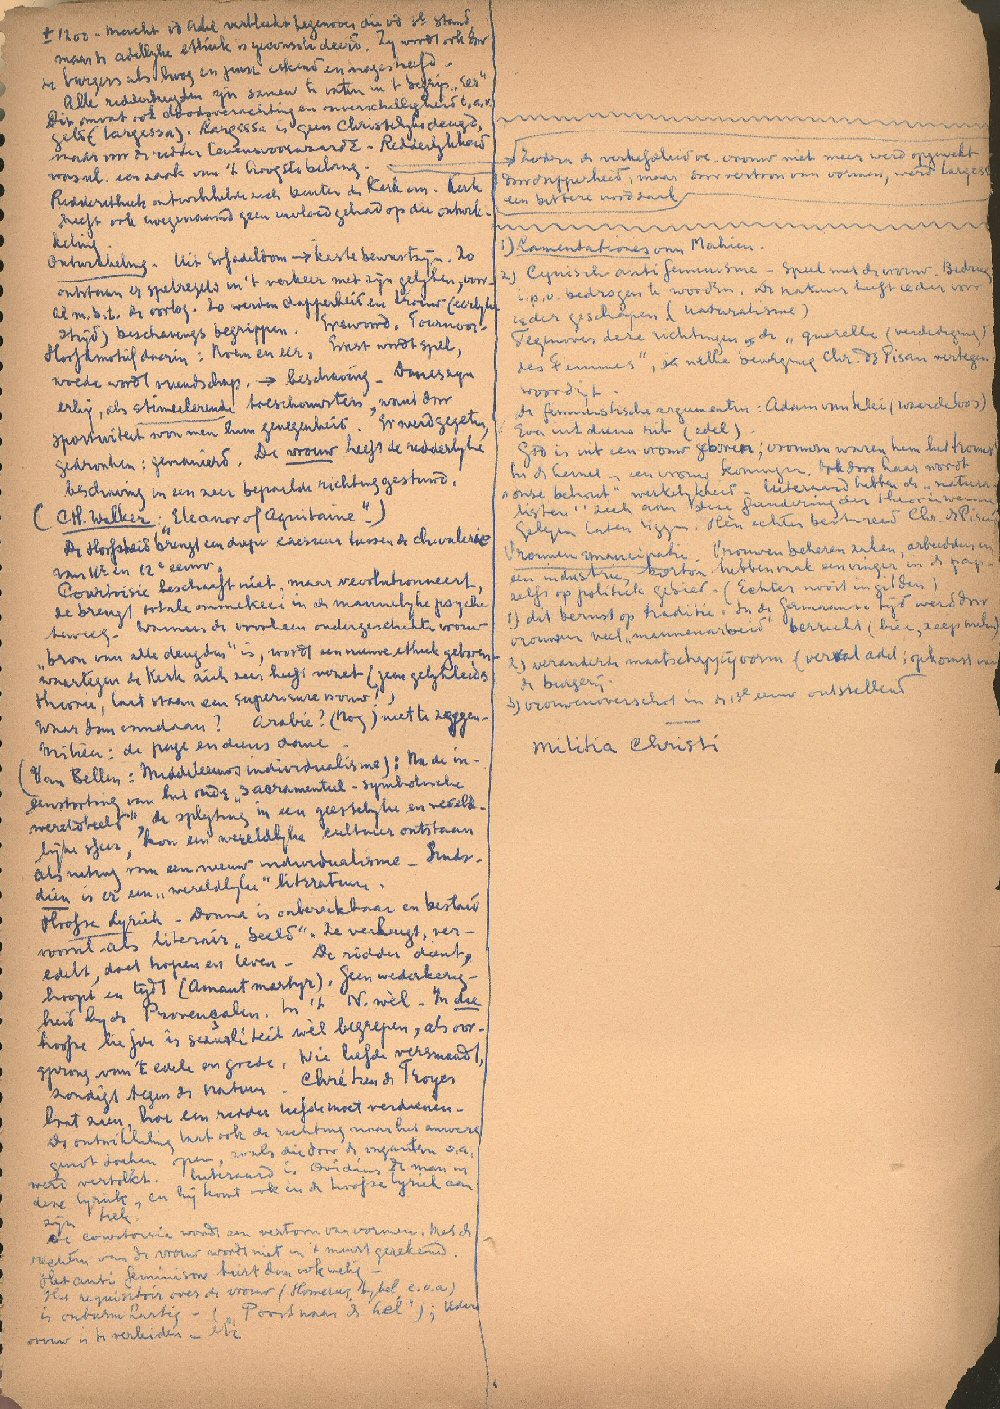 ± 1200 - macht vd Adel verbleekt tegenover die vd 3e stand,
maar de adellijke ethiek is geconsolideerd. Zy wordt ook door
de burgers als hoog en juist erkend en nagestreefd.
Alle ridderdeugden zyn samen te vatten in 't begrip „Eer"
Dit omvat ook doodsverachting en onverschilligheid t.a.v.
geld (largessa). Largessa is geen Christelyke deugd,
maar voor de ridder levensvoorwaarde. - Ridderlykheid
was nl. een zaak van 't hoogste belang.
Ridderethiek ontwikkelde zich buiten de Kerk om. Kerk
heeft ook noemenswaard geen invloed gehad op die ontwik-
keling.
Ontwikkeling. Uit Sofadeldom → kastebewustzyn. Zo
ontstaan er spelregels in 't verkeer met zyn gelyken, voor-
al m.b.t. de oorlog. Zo werden dapperheid en trouw (eerlyke
stryd) beschavings begrippen. Erewoord. Tournooi.
Hoofdmotief daarin: Roem en eer. Ernst wordt spel,
woede wordt vriendschap. → beschaving - Dames zyn
erby, als stimulerende toeschouwsters, want door
sportiviteit won men hun genegenheid. Er werd gegeten,
gedronken: gemanierd. De vrouw heeft de ridderlyke
beschaving in een zeer bepaalde richting gestuurd.
(C.H. Walker: „Eleanor of Aquitaine" -)
De Hoofsheid brengt een diepe caesuur tussen de chevalerie
van 11e en 12e eeuw.
Courtoisie beschaaft niet, maar revolutionneert,
ze brengt totale ommekeer in de mannelyke psyche
teweeg. Wanneer de voorheen ondergeschikte vrouw
„bron van alle deugden" is, wordt een nieuwe ethiek geboren
waartegen de Kerk zich zeer heeft verzet (geen gelykheids
theorie, laat staan een superieure vrouw!)
Waar dan vandaan? Arabië? (Nog) niet te zeggen.
Milieu: de page en diens dame.
(Van Bellen: Middeleeuws individualisme): Na de in-
eenstorting van het oude „sacramenteel-symbolische
wereldbeeld", de splyting in een geestelyke en wereld-
lyke sfeer, kon een wereldlyke cultuur ontstaan
als uiting van een nieuw individualisme - Sinds-
dien is er een „wereldlyke" literatuur.
Hoofse Lyriek - Donna is onbereikbaar en bestaat
vooral als literair „beeld". Ze verheugt, ver-
edelt, doet hopen en leven - De ridder dient,
hoopt en lydt (Amant martyr). Geen wederkerig-
heid by de Provençalen. In 't N. wèl - In die
hoofse liefde is sexualiteit wèl begrepen, als oor-
sprong van 't edele en goede. Wie liefde versmaadt,
zondigt tegen de natuur. Chrétien de Troyes
laat zien, hoe een ridder liefde moet verdienen.
De ontwikkeling laat ook de richting naar het onvere
genot zoeken open, zoals die door de vaganten o.a.
werd vertolkt. Uiteraard is Ovidius de man in
deze lyriek, en hij komt ook in de hoofse lyriek aan
zijn trek.
De courtoisie wordt een vertoon van vormen. Met de
rechten van de vrouw wordt niet in 't minst gerekend.
Het anti feminisme tiert dan ook welig -
Het requisitoir over de vrouw (Homerus, bybel, e.a.a)
is onbarmhartig - („Poort naar de hel"); Iedere
vrouw is te verleiden - etc
→ Zodra de verliefdheid ve. vrouw niet meer werd opgewekt
door dapperheid, maar door vertoon van vormen, werd largesse
een bittere noodzaak
1) Lamentationes van Mahieu.
2) Cynisch anti feminisme - Spel met de vrouw. Bedrieg
i.p.v. bedrogen te worden. De natuur heeft ieder voor
ieder geschapen (naturalisme)
Tegenover deze richtingen de „querelle (verdediging)
des Femmes", in welke beweging Chr. de Pisan vertegen-
woordigt.
de feministische argumenten: Adam van klei (waardeloos)
Eva uit diens rib (edel).
God is uit een vrouw geboren; vrouwen waren hem het trouwst
In de hemel - een vrouw koningin. Ook door haar wordt
„onze behoud" werkelykheid - Uiteraard hebben de „natura-
listen" zich aan deze fundering der theorie weinig
gelegen laten liggen. Hèn echter bestreed Chr. de Pisan
Vrouwen emancipatie. Vrouwen beheren zaken, arbeidden in
een industrie, hebben vaak een vinger in de pap,
zelfs op politiek gebied. (Echter nooit in gilden;
1) dat berust op traditie. In de Germaanse tyd werd door
vrouwen veel „mannenarbeid" verricht (bier, zeep
2) veranderde maatschappijvorm (verval adel; opkomst van
de burgerij.
3) vrouwenoverschot in de 13e eeuw ontstellend
Militia Christi